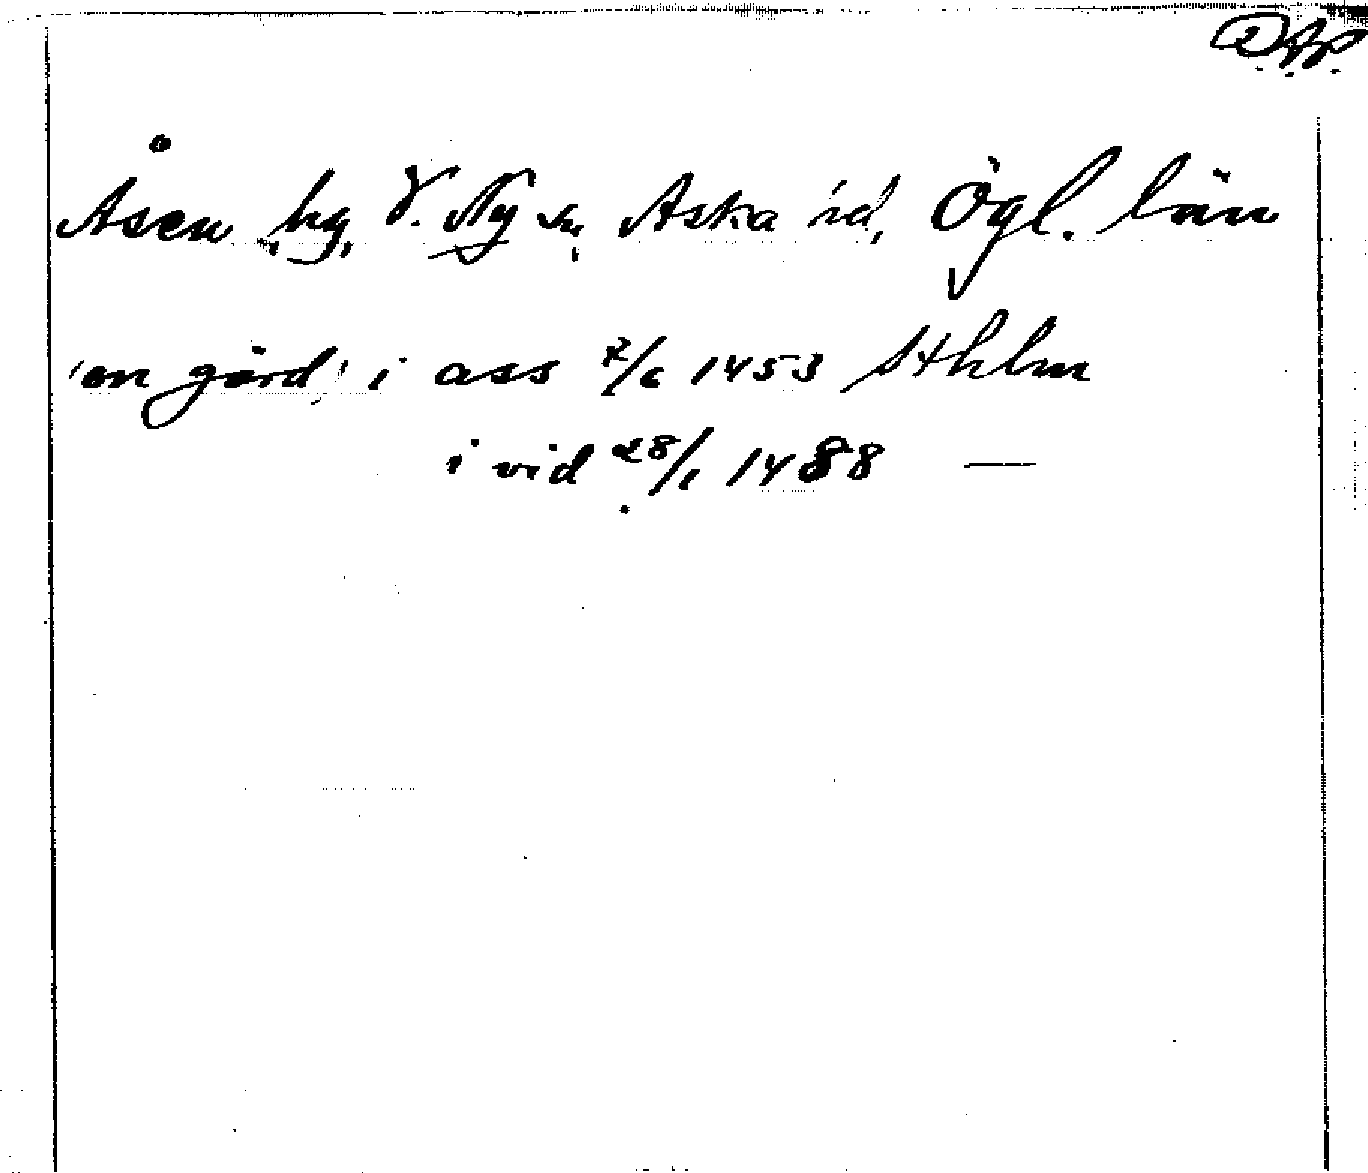 Åsen, hg, V. Ny sn, Aska hd, Ögl. län
'en gård' i ass 7/6 1453 Sthlm
i vid 28/1 1488 —